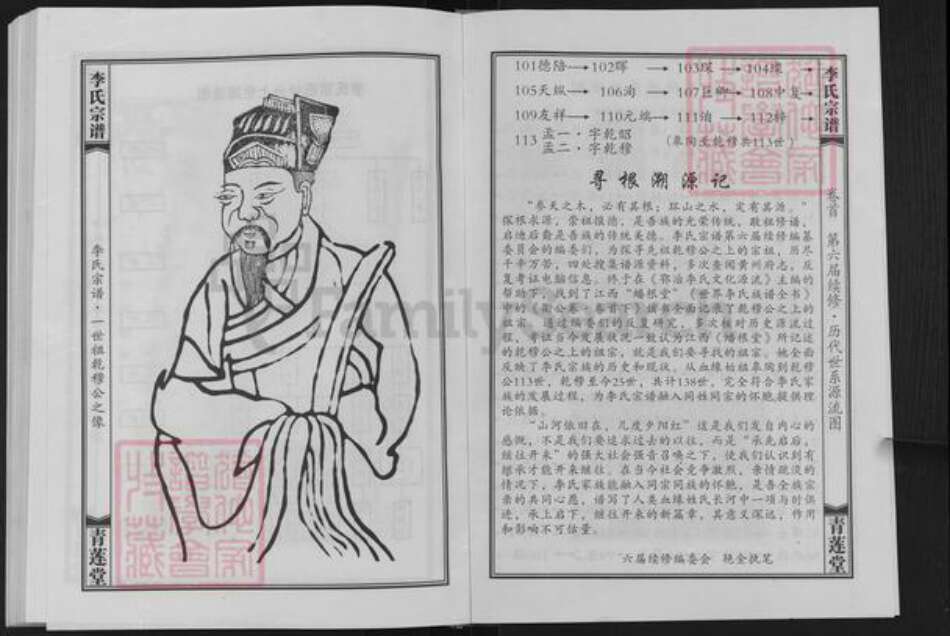 李氏宗谱
李氏宗谱·一世祖乾穆公之像
青莲堂
101德陪→102晖→103琛→104璨→
105天纵→106洵→107巨卿→108中复→
109友祥→110元端→111珀→112梓→
113 孟一·字乾昭
孟二·字乾穆
(皋陶至乾修共113世)
寻根溯源记
“参天之木,必有其根;环山之水,定有其源。”
探根求源,崇祖报德,是吾族的光荣传统,敬祖修谱,
启德后裔是吾族的传统美德。李氏宗谱第六届续修编纂
委员会的编委们,为探寻先祖乾穆公之上的宗祖,历尽
千辛万苦,四处搜集谱源资料,多次查阅黄州府志,反
复考证电脑信息。终于在《鄂冶李氏文化源流》主编的
帮助下,找到了江西“蟠根堂”《世界李氏族谱全书》
中的《宪公卷·卷首下》该书全面记录了乾穆公之上的
祖宗。通过编委们的反复研究,多次核对历史源流过
程,考证当今发展状况一致认为江西《蟠根堂》所记述
的乾穆公之上的祖宗,就是我们要寻找的祖宗。她全面
反映了李氏宗族的历史和现状。从血缘始祖皋陶到乾修
公113世,乾穆至今25世,共计138世,完全符合李氏家
族的发展过程,为李氏宗谱融入同姓同宗的怀抱提供理
论依据。
“山河依旧在,几度夕阳红”这是我们发自内心的
感慨,不是我们要追求过去的以往,而是“承先启后,
继往开来”的强大社会强音召唤之下,使我们认识到有
继承才能开来继往。在当今社会竞争激烈,亲情疏没的
情况下,李氏家族能融入同宗同族的怀抱,是吾全族宗
亲的共同心愿,谱写了人类血缘姓氏长河中一项与时俱
进,承上启下,继往开来的新篇章,其意义深远,作用
和影响不可估量。
六届续修编委会 艳全执笔
李氏宗谱
卷首 第六届续修·历代世系源流图
青莲堂